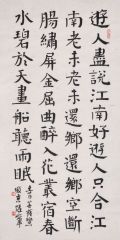 遊人盡說江南好遊人只合江
南老未老莫還鄉還鄉空斷
腸繡屏金屈曲醉入花叢宿春
水碧於天畫船聽雨眠